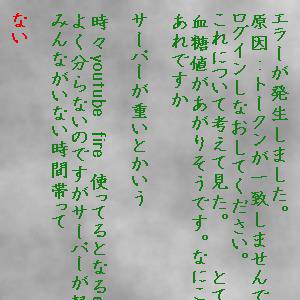 エラーが発生しました。
原因：トークンが一致しませんで
ログインしなおしてください。
これについて考えて見た。　とて
血糖値があがりそうです。なにこ
あれですか
サーバーが重いとかいう
時々youtube fire 使ってるとなるe
よく分らないのですがサーバーが
みんながいない時間帯って
ない